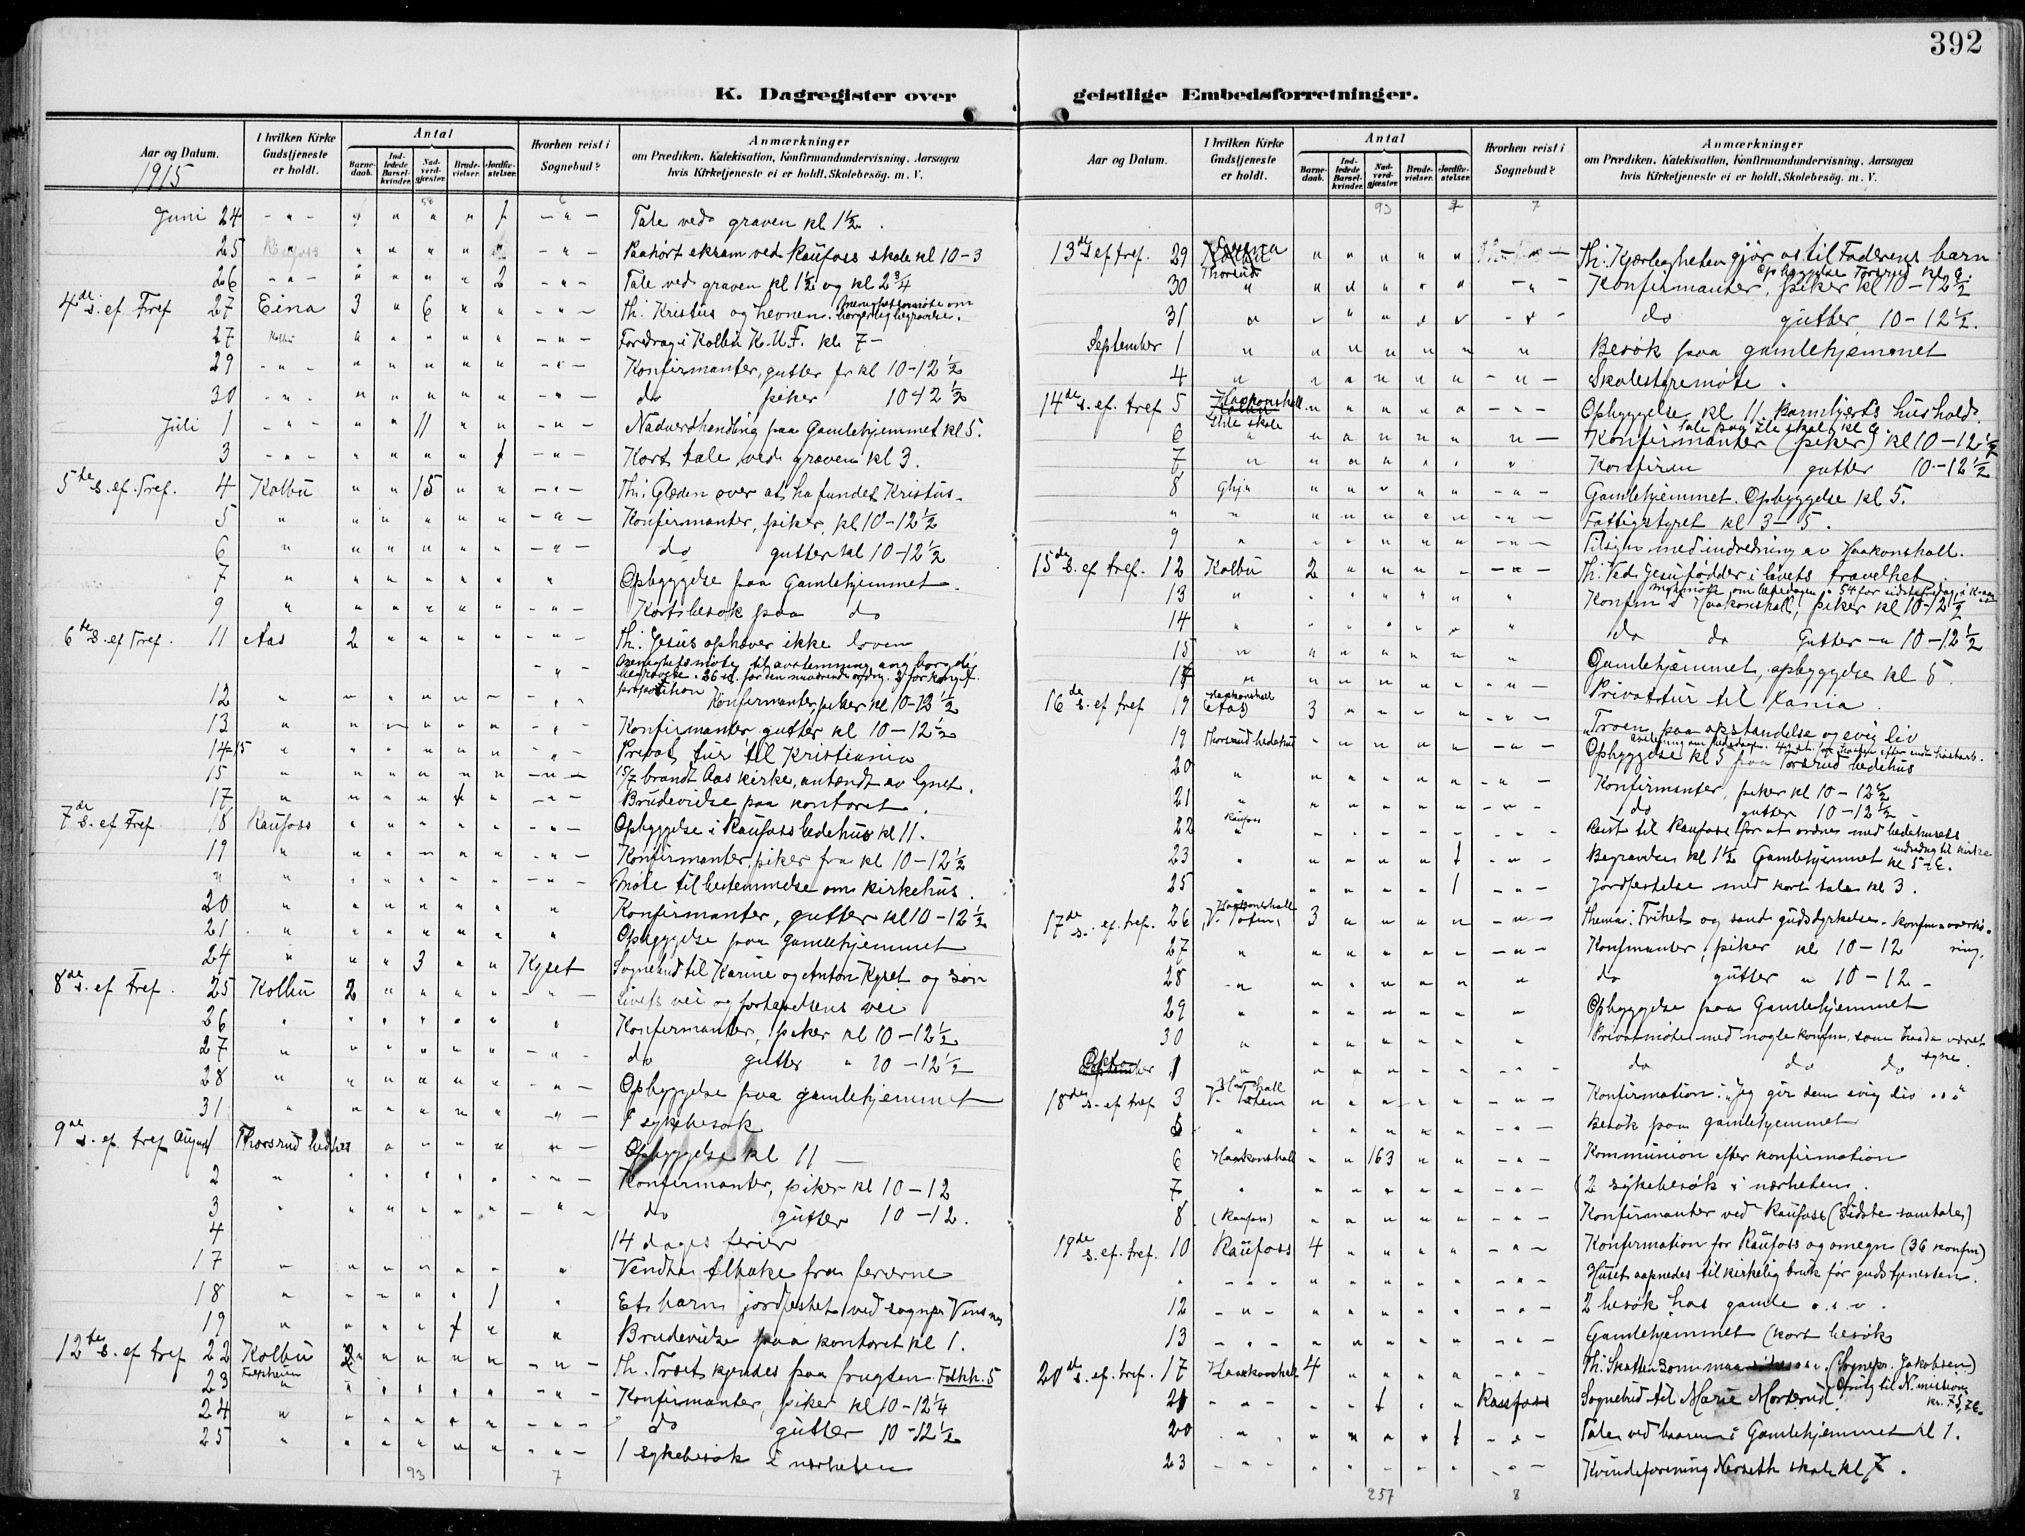 392
K. Dagregister over
geistlige Embedsforretninger.
Aar og Datum.
1915
I hvilken Kirke Gudstjeneste er holdt.
Antal
Barnedaab.
Indledede Barselkvinder.
Nadverdgjæster.
Brudevielser.
Jordfæstelser.
Hvorhen reist i Sognebud?
Anmærkninger
om Prædiken, Katekisation, Konfirmandundervisning, Aarsagen
hvis Kirketjeneste ei er holdt, Skolebesøg. m. V.
Juni 24 - " - " " " 1 - " - Tale ved graven kl 1½.
25 Raufoss " " " " " - " - Paahørt eksam ved Raufoss skole kl 10-3
26 - " - " " " " 2 - " - Tale ved graven kl 1½ og kl 2¾
4de s. ef Tref 27 Eina 3 " 6 " " - " - Th. Kristus og hevnen. Menighetsmøte om borgerlig begravelse.
27 Kolbu " " " " " - " - Foredrag i Kolbu K.U.F. kl. 7 -
29 - " - " " " " " - " - Konfirmanter, gutter fr kl 10-12½
30 - " - " " " " " - " - do piker 10-12½
Juli 1 - " - " " 11 " " - " - Nadverdhandling paa Gamlehjemmet kl 5.
3 - " - " " " " 1 - " - Kort tale ved graven kl 3.
5te s. ef. Tref. 4 Kolbu " " 15 " " - " - Th: Glæden over at ha fundet Kristus.
5 " " " " " " - " - Konfirmanter, piker, kl 10-12½
6 " " " " " " - " - do gutter kl 10-12½
7 " " " " " " " Opbyggelse paa Gamlehjemmet.
9 " " " " " " - " - Kort besøk paa do
6te s. ef Tref. 11 Aas 2 " " " " - " - Th: Jesus ophæver ikke loven
Menighetsmøte til avstemning ang borgerlig
12 " " " " " " " Konfirmanter, piker kl 10-12½
13 " " " " " " " Konfirmanter gutter kl 10-12½
14-15 " " " " " " " Privat tur til Kristiania
15 " " " " " " - " - 15/7 brandt Aas kirke, antændt av lynet.
17 " " " " 1 " - " - Brudevielse paa kontoret.
7de s. ef Tref. 18 Raufoss " " " " " - " - Opbyggelse i Raufoss bedehus kl 11.
19 " " " " " " - " - Konfirmanter, piker fra kl. 10-12½
" " " " " " " - " - Møte til bestemmelse om kirkehus.
20 " " " " " " - " - Konfirmanter, gutter kl 10-12½
21 " " " " " " - " - Opbyggelse paa Gamlehjemmet
24 " " " 3 " " Kyset Sognebud til Karine og Anton Kyset og søn
8de s. ef Tref. 25 Kolbu 2 " " " " - " - Livets vei og fortapelsens vei
26 " " " " " " " Konfirmanter, piker kl 10-12½
27 " " " " " " - " - do gutter " 10-12½
28 " " " " " " - " - Opbyggelse paa gamlehjemmet
31 " " " " " " " 1 sykebesøk
9de s. ef tref August 1 Thorsrud bedehus " " " " - " - Opbyggelse kl 11 -
2 " " " " " " - " - Konfirmanter, piker kl 10-12
3 " " " " " " - " - do gutter 10-12.
4 14 dages ferier
17 " " " " " " " Vendt tilbake fra ferierne
18 " " " " " 1 " Et barn jordfæstet ved sognepr Vinsnes
19 " " " " 1 " " Brudevielse paa kontoret kl 1.
12te s. ef tref 22 Kolbu 2 " " " " - " - Th. Træet kjendes paa frugten. Folkh. 5
23 " " " " " " - " - Konfirmanter, piker kl 10-12¼
24 " " " " " " - " - do gutter 10-12½
25 " " " " " " - " - 1 sykebesøk i nærheten
93 7
Aar og Datum.
I hvilken Kirke Gudstjeneste er holdt.
Antal
Barnedaab.
Indledede Barselkvinder.
Nadverdgjæster.
Brudevielser.
Jordfæstelser.
Hvorhen reist i Sognebud?
Anmærkninger
om Prædiken, Katekisation, Konfirmandundervisning, Aarsagen
hvis Kirketjeneste ei er holdt, Skolebesøg. m. V.
93 7 7
13de s. ef tref. 29 " " " " " Th: Kjærligheten gjør os til Faderens barn
Opbyggelse Torsrud kl 9.
30 Thorsrud " " " " " - " - Konfirmanter, piker kl 10-12½
31 " " " " " " - " - do gutter, 10-12½.
September 1 " " " " " " " Besøk paa gamlehjemmet
4 " " " " " " - " - Skolestyremøte.
14de s. ef. tref 5 Haakonshall " " " " " - " - Opbyggelse kl 11.
6 " " " " " " " - Konfirmanter (piker) kl 10-12½
7 " " " " " " " Konfirm gutter 10-12½
8 " " " " " - " - Gamlehjemmet. Opbyggelse kl 5.
" " " " " " " - " - Fattigstyret kl 3-5.
9 " " " " " " - " - Tilsyn med indredning av Haakonshall.
15de s. ef tref. 12 Kolbu 2 " " " " - " - Th: Ved Jesu fødder i livets travelhet.
13 " " " " " " " Konfirm i Haakonshall, piker kl 10-12½
14 " " " " " " " do do Gutter - " 10-12½
15 " " " " " " " Gamlehjæmmet, opbyggelse kl 5.
17 " " " " " " - " - Privattur til Krania.
16de s. ef tref 19 Haakonshall (Aas) 3 " " " " - " - Troen paa opstandelse og evig liv
19 Thorsrud bedehus " " " " " - " - Opbyggelse kl 5 paa Torsrud bedehus
20 " " " " " " - " - Konfirmanter, piker kl 10-12½
21 " " " " " " - " - do gutter 10-12½
22 Raufoss " " " " " - " - Reist til Raufoss for at ordne med bedehusets indredng til kirke
23 " " " " " 1 - " - Begravelse kl 1½ Gamlehjemmet kl 5
25 " " " " " 1 - " - Jordfestelse med kort tale kl 3.
17de s. ef. tref. 26 Haakonshall V. Toten 3 " " " " - " - Thema: Frihet og sand gudsdyrkelse. Konfm overhøring.
27 " " " " " " - " - Konfmanter, piker kl 10-12
28 " " " " " " " do gutter " 10-12 -
29 " " " " " " " Opbyggelse paa Gamlehjemmet
30 " " " " " " " Privatmøte med nogle konfm. som hadde været syke.
Oktober 1 " " " " " " - " - do do do
18de s. ef tref 3 V. Toten " " " " " - " - Konfirmation: "Jeg gir dem evig liv ..."
5 " " " " " " - " - Besøk paa gamlehjemmet
6 Haakonshall " " 163 " " - " - Kommunion efter konfirmation
7 " " " " " " - " - 2 sykebesøk i nærheten.
8 (Raufoss) " " " " " - " - Konfirmanter ved Raufoss (sidste samtale)
19de s. ef. tref. 10 Raufoss 4 " " " " - " - Konfirmation for Raufoss og omegn (36 konfm)
" - " - " " " " " - " - Huset aapnedes til kirkelig bruk før gudstjenesten.
12 - " - " " " " " - " - 2 besøk hos gamle o.s.v.
13 - " - " " " " " - " - Gamlehjemmet (kort besøk
20de s. ef. tref. 17 Haakonshall 4 " " " " - " - Th: Skatten som maa (Sognepr. Jakobsen)
21 - " - " " 1 " " Raufoss Sognebud til Marie Morterud. Ofring til N. mission
20 " " " " " 1 - " - Tale ved baaren i Gamlehjemmet kl 1.
23 - " - " " " " " - " - Kvindeforening Nerseth skole kl 7.
257 8